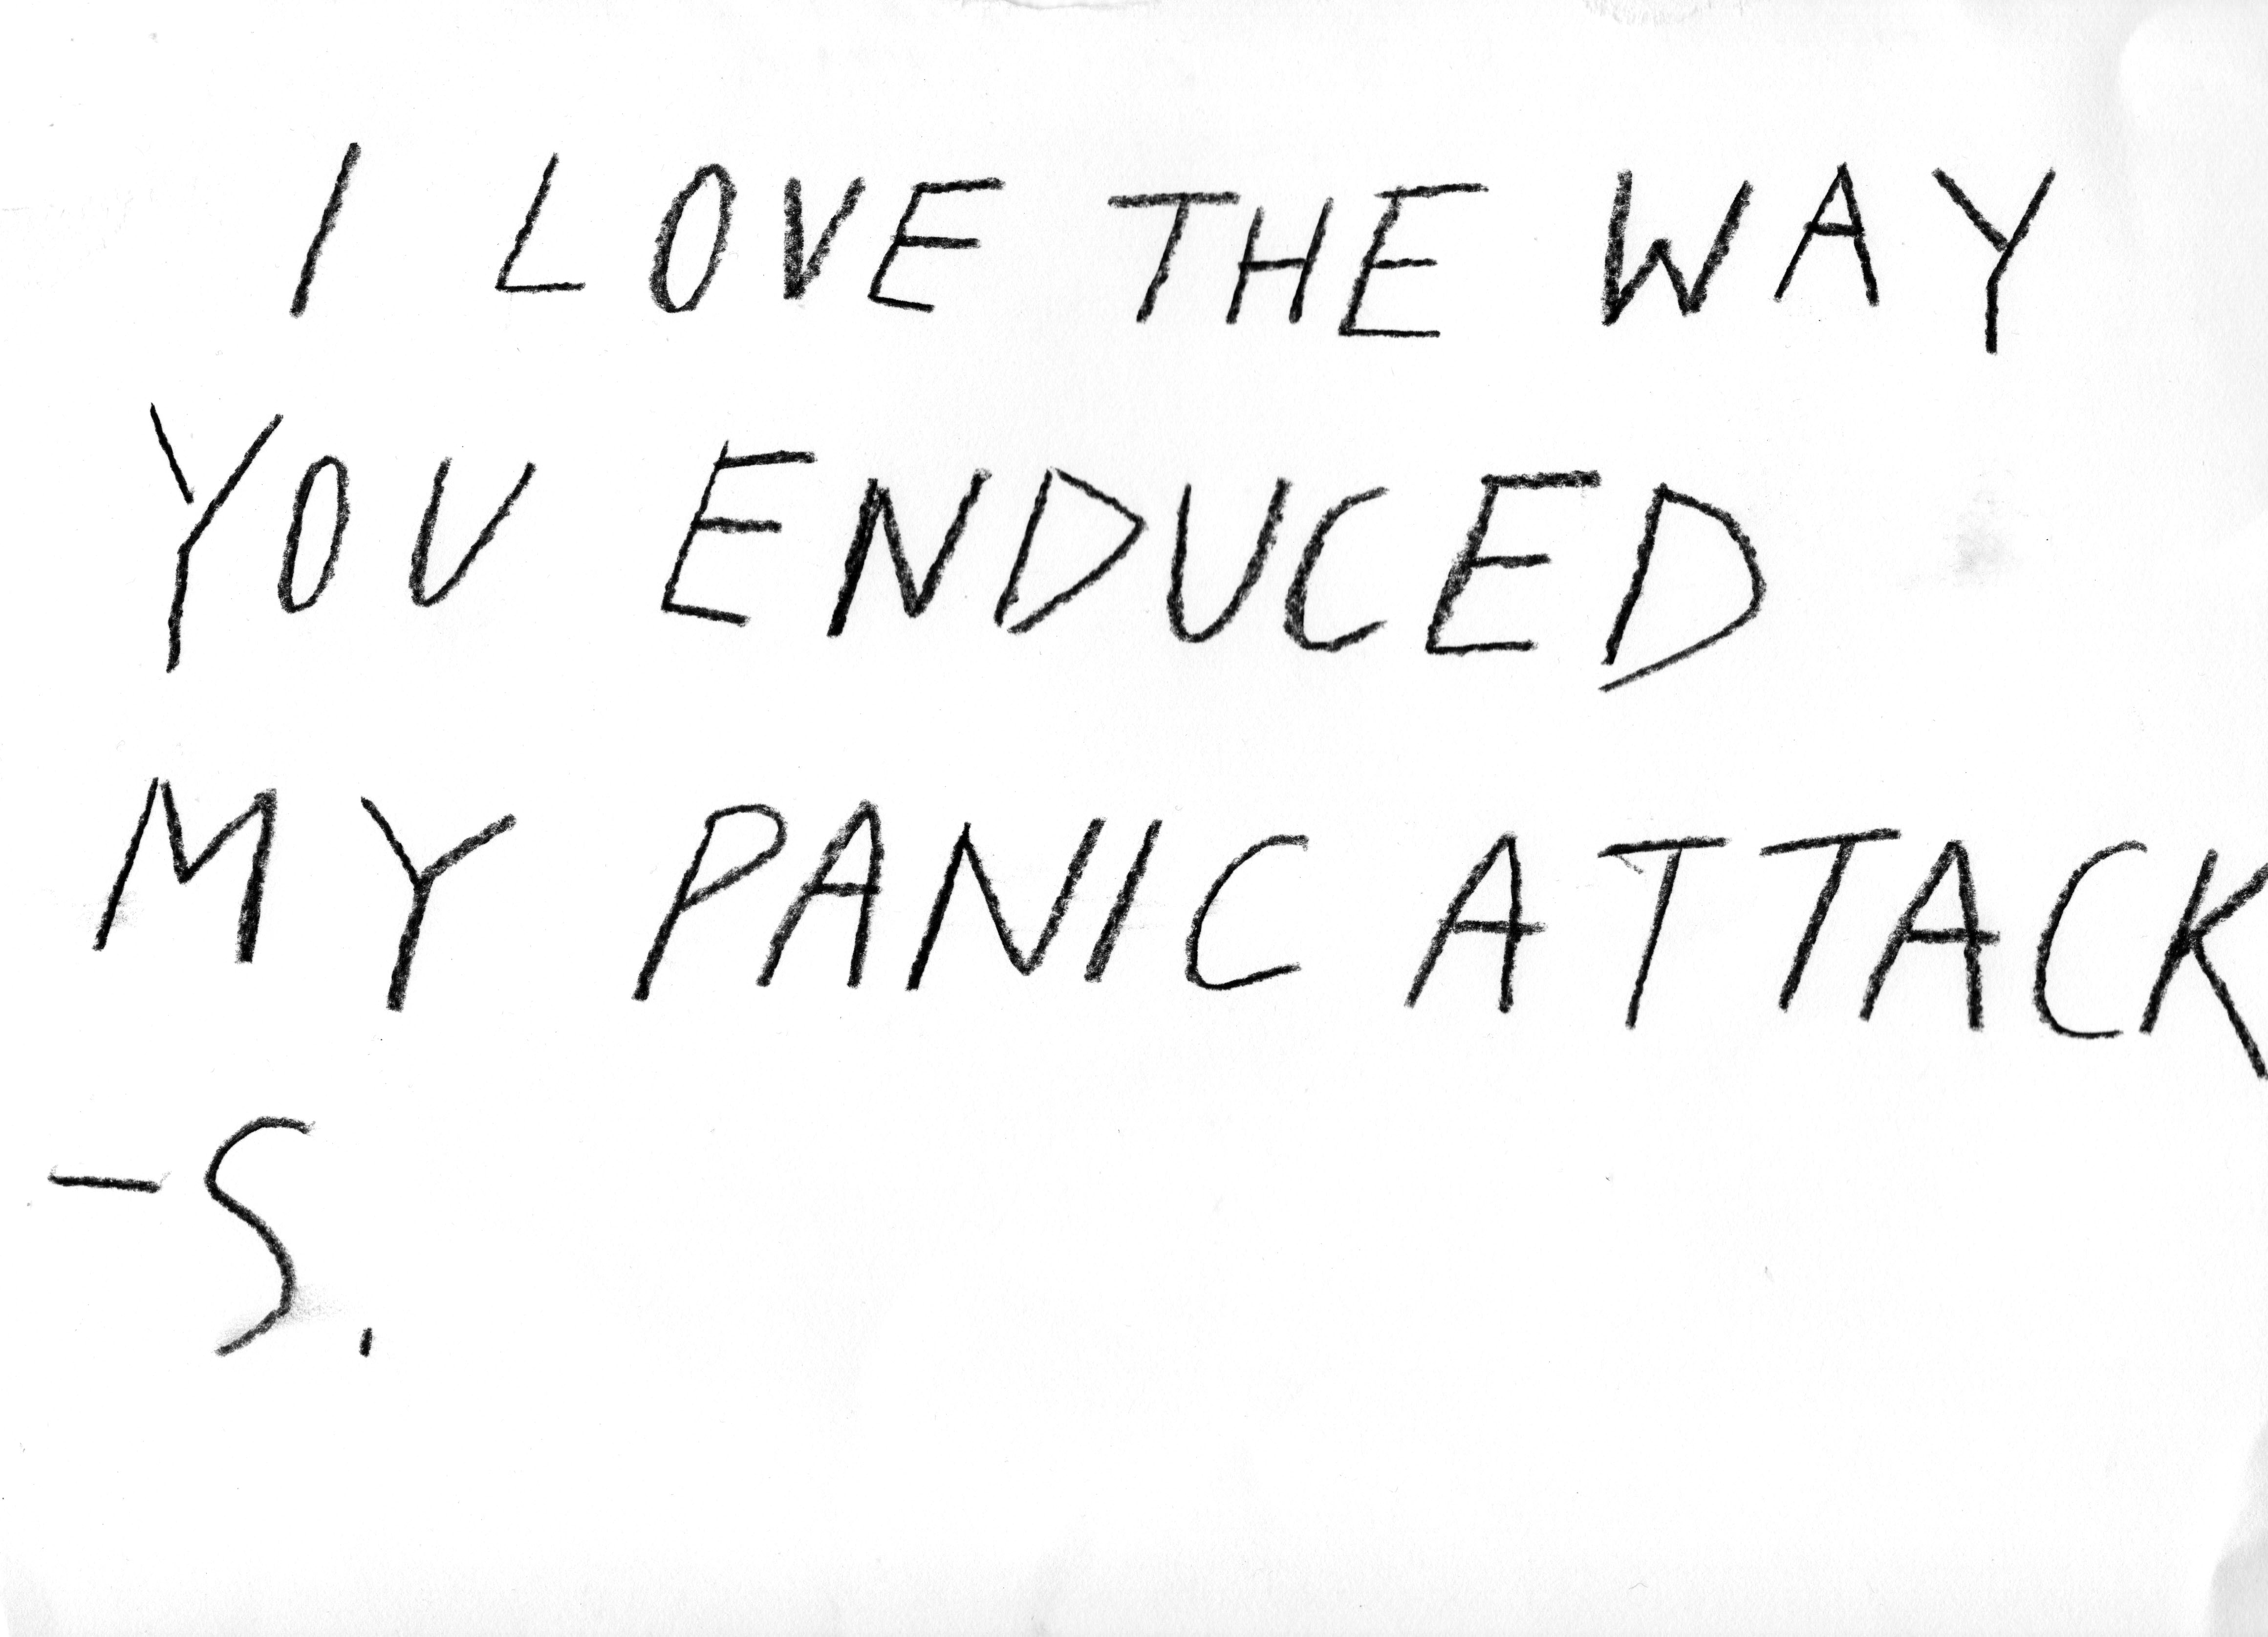 I LOVE THE WAY
YOU ENDUCED
MY PANIC ATTACK
-S.